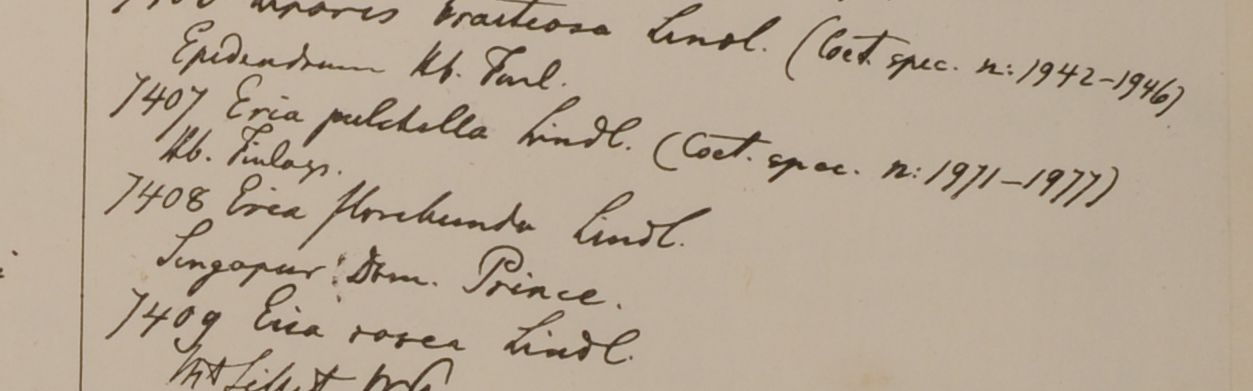 Lindl. (Coet. spec. n: 1942-1946)
Epidendrum Hb. Finl.
7407 Eria pulchella Lindl. (Coet. spec. n: 1971-1977)
Hb. Finlays.
7408 Eria floribunda Lindl.
Singapur Dom. Prince.
7409 Eria rosea Lindl.